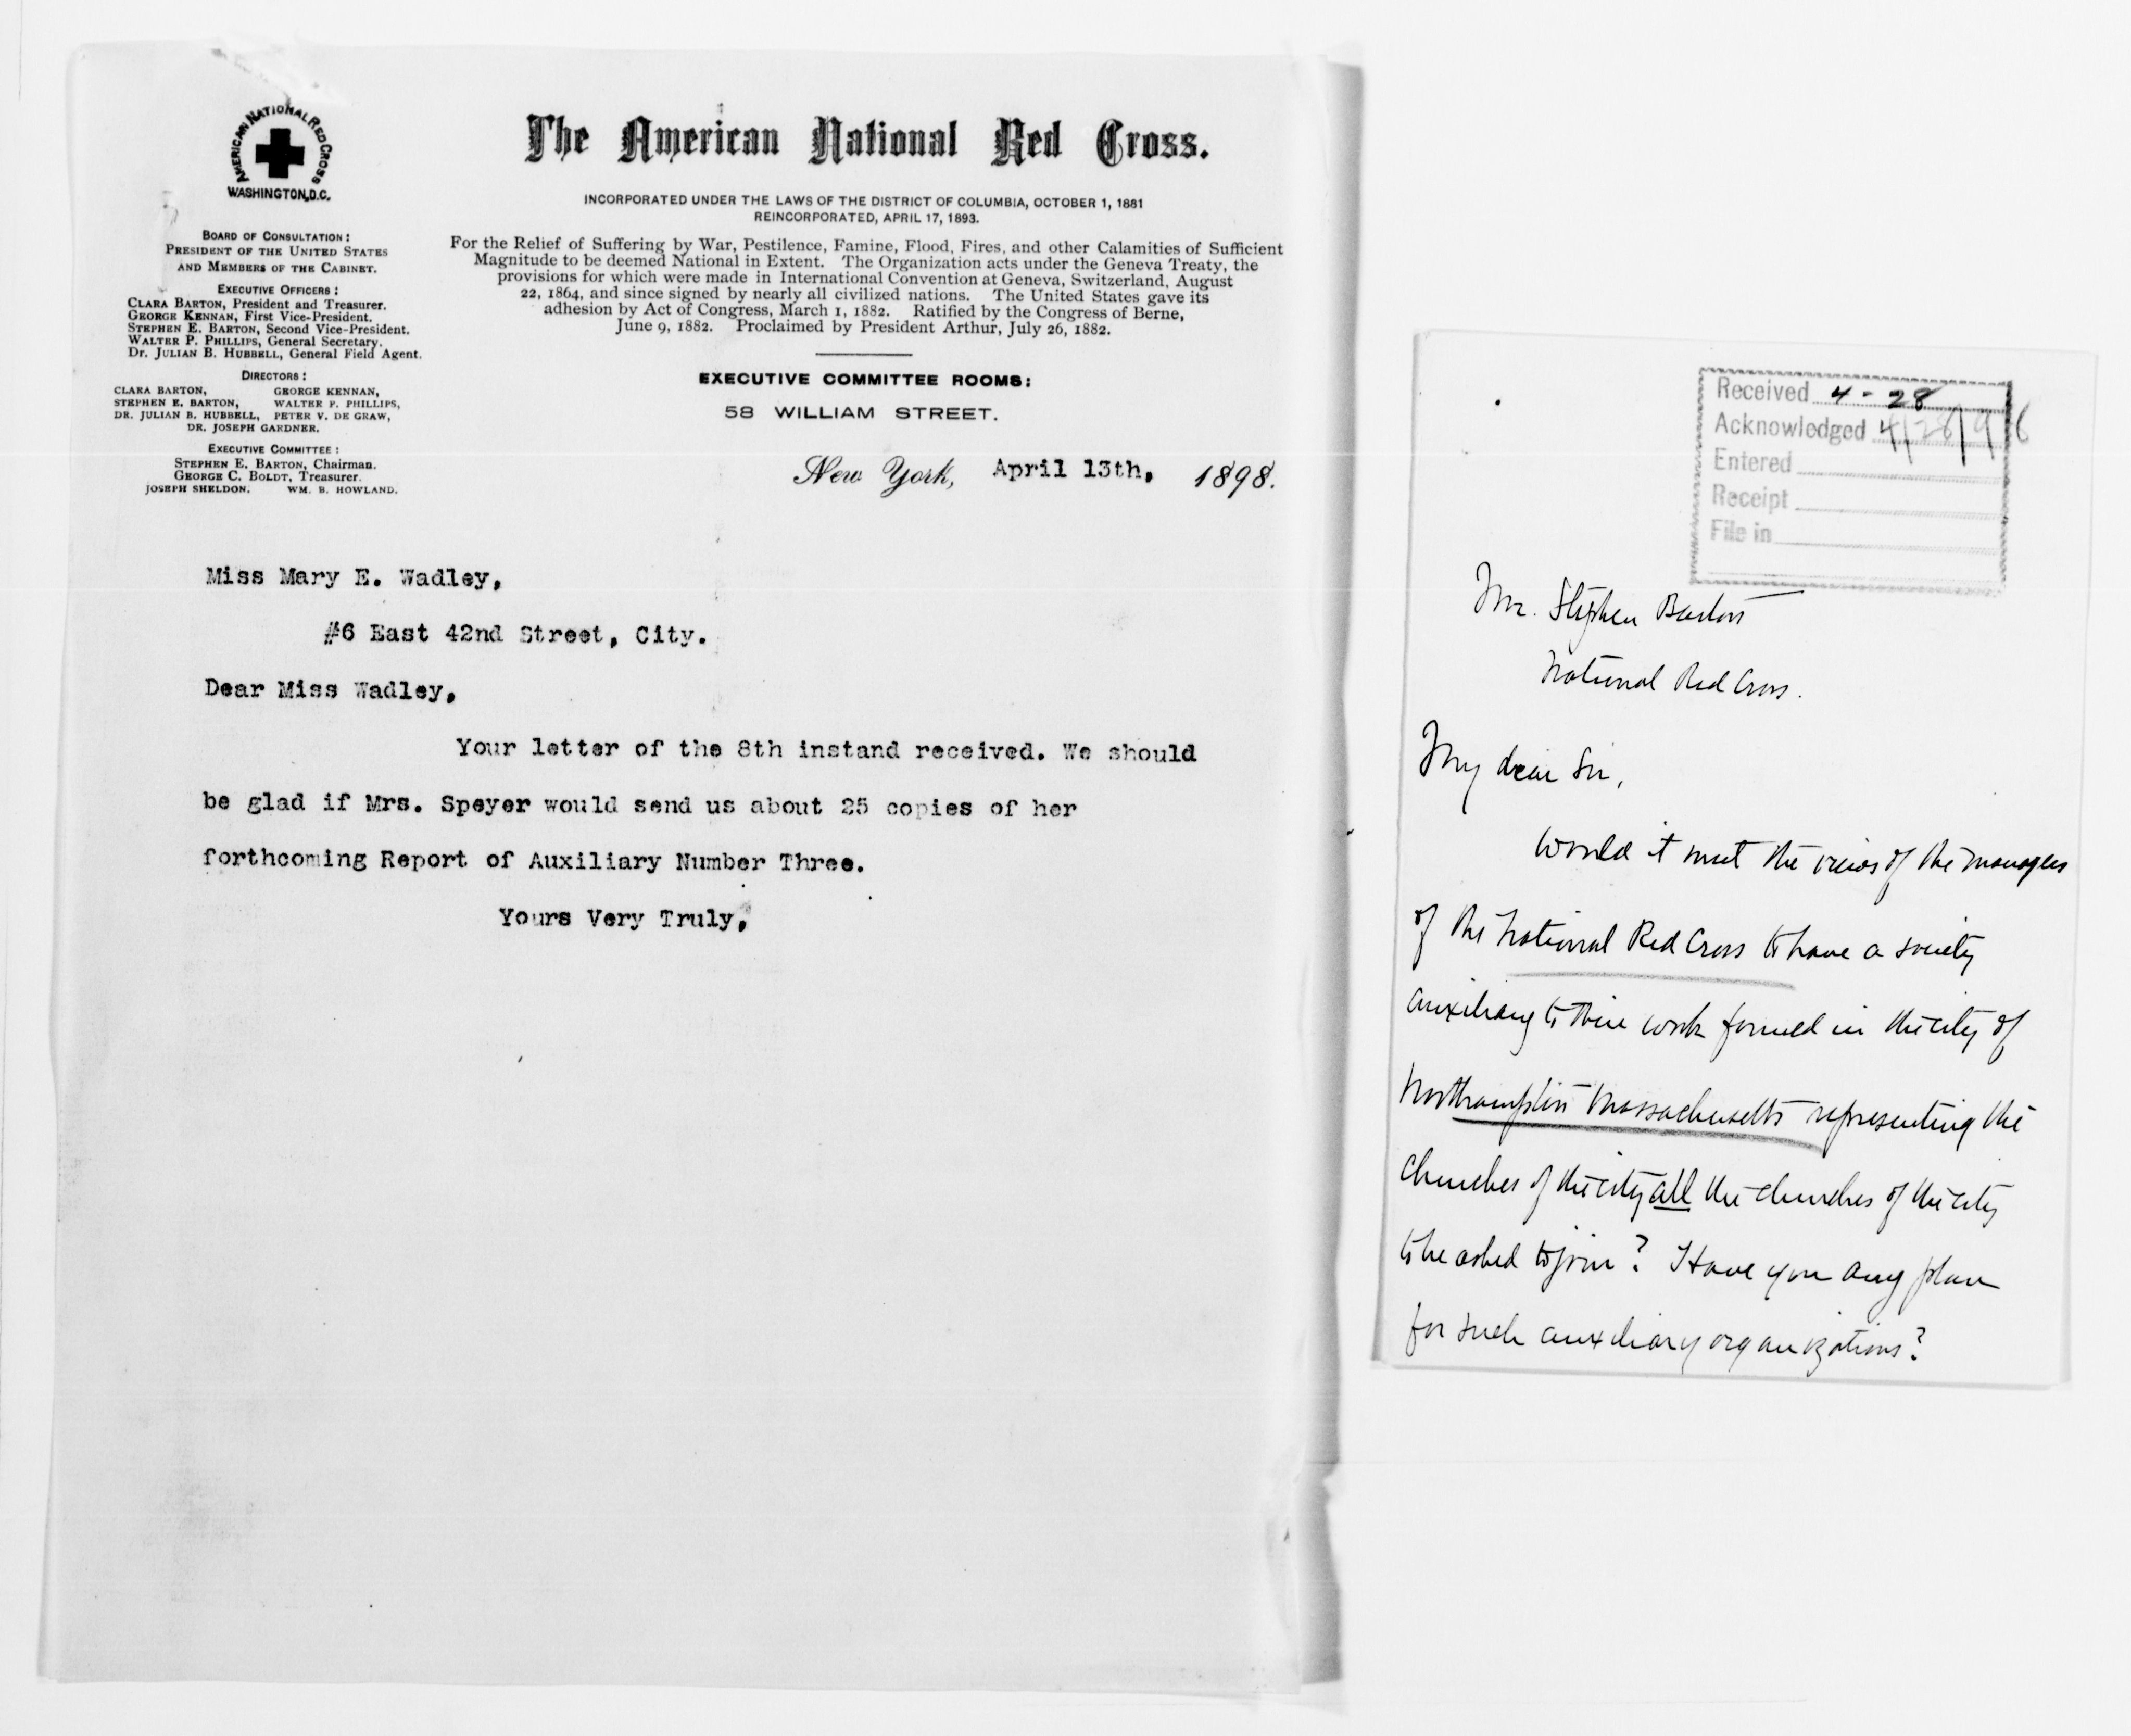 AMERICAN NATIONAL RED CROSS
WASHINGTON, D.C.
BOARD OF CONSULTATION:
PRESIDENT OF THE UNITED STATES
AND MEMBERS OF THE CABINET.
EXECUTIVE OFFICERS:
CLARA BARTON, President and Treasurer.
GEORGE KENNAN, First Vice-President.
STEPHEN E. BARTON, Second Vice-President.
WALTER P. PHILLIPS, General Secretary.
Dr. JULIAN B. HUBBELL, General Field Agent.
DIRECTORS:
CLARA BARTON, GEORGE KENNAN,
STEPHEN E. BARTON, WALTER P. PHILLIPS,
DR. JULIAN B. HUBBELL, PETER V. DE GRAW,
DR. JOSEPH GARDNER.
EXECUTIVE COMMITTEE:
STEPHEN E. BARTON, Chairman.
GEORGE C. BOLDT, Treasurer.
JOSEPH SHELDON. WM. B. HOWLAND.
The American National Red Cross.
INCORPORATED UNDER THE LAWS OF THE DISTRICT OF COLUMBIA, OCTOBER 1, 1881
REINCORPORATED, APRIL 17, 1893.
For the Relief of Suffering by War, Pestilence, Famine, Flood, Fires, and other Calamities of Sufficient
Magnitude to be deemed National in Extent. The Organization acts under the Geneva Treaty, the
provisions for which were made in International Convention at Geneva, Switzerland, August
22, 1864, and since signed by nearly all civilized nations. The United States gave its
adhesion by Act of Congress, March 1, 1882. Ratified by the Congress of Berne,
June 9, 1882. Proclaimed by President Arthur, July 26, 1882.
EXECUTIVE COMMITTEE ROOMS:
58 WILLIAM STREET.
New York, April 13th, 1898.
Miss Mary E. Wadley,
#6 East 42nd Street, City.
Dear Miss Wadley,
Your letter of the 8th instand received. We should
be glad if Mrs. Speyer would send us about 25 copies of her
forthcoming Report of Auxiliary Number Three.
Yours Very Truly,
Received 4-28
Acknowledged 4/28/98
Entered
Receipt
File in
Mr. Stephen Barton
National Red Cross.
My dear Sir,
Would it meet the views of the managers
of the National Red Cross to have a society
auxiliary to their work formed in the city of
Northampton Massachusetts representing the
churches of the city all the churches of the city
to be asked to join? Have you any plan
for such auxiliary organizations?